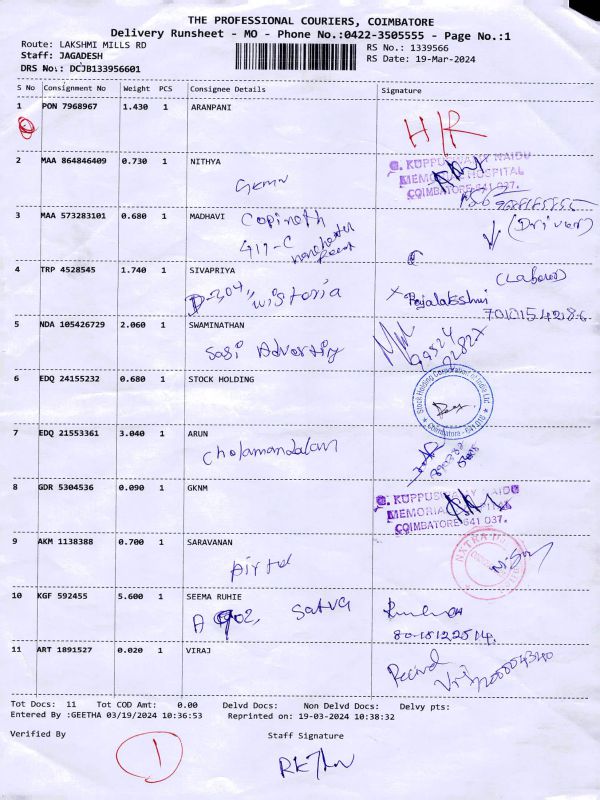 THE PROFESSIONAL COURIERS, COIMBATORE
Delivery Runsheet - MO - Phone No.:0422-3505555 - Page No.:1
Route: LAKSHMI MILLS RD
Staff: JAGADESH
DRS No.: DCJB133956601
RS No.: 1339566
RS Date: 19-Mar-2024
S No Consignment No Weight PCS Consignee Details Signature
1 PON 7968967 1.430 1 ARANPANI
H/R
2 MAA 864846409 0.730 1 NITHYA
GKNM
G. KUPPUSWAMY NAIDU
MEMORIAL HOSPITAL
COIMBATORE-641 037.
3 MAA 573283101 0.680 1 MADHAVI
Gopinath
411-C
(Driver)
4 TRP 4528545 1.740 1 SIVAPRIYA
D-304, wistoria
(Labour)
Rajalakshmi
7010154286
5 NDA 105426729 2.060 1 SWAMINATHAN
Sasi Adverting
6 EDQ 24155232 0.680 1 STOCK HOLDING
Stock Holding Corporation of India Ltd
Coimbatore - 641 018
7 EDQ 21553361 3.040 1 ARUN
Cholamandalam
8 GDR 5304536 0.090 1 GKNM
G. KUPPUSWAMY NAIDU
MEMORIAL HOSPITAL
COIMBATORE-641 037.
9 AKM 1138388 0.700 1 SARAVANAN
Airtel
10 KGF 592455 5.600 1 SEEMA RUHIE
A 902, Satva
11 ART 1891527 0.020 1 VIRAJ
Tot Docs: 11 Tot COD Amt: 0.00 Delvd Docs: Non Delvd Docs: Delvy pts:
Entered By :GEETHA 03/19/2024 10:36:53 Reprinted on: 19-03-2024 10:38:32
Verified By Staff Signature
1